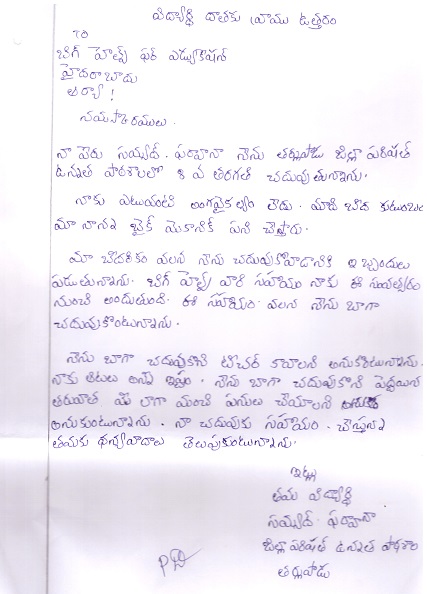 విద్యార్థి దాతకు వ్రాయు ఉత్తరం
TO
బిగ్ హెల్ప్ ఫర్ ఎడ్యుకేషన్
హైదరాబాదు
ఆర్యా !
నమస్కారములు.
నా పేరు సయ్యద్. ఫర్హానా నేను తర్లుపాడు జిల్లా పరిషత్
ఉన్నత పాఠశాలలో 8 వ తరగతి చదువుతున్నాను.
నాకు ఎటువంటి అంగవైకల్యం లేదు. మాది బీద కుటుంబం
మా నాన్న బైక్ మెకానిక్ పని చేస్తారు.
మా బీదరికం వలన నేను చదువుకోవడానికి ఇబ్బందులు
పడుతున్నాను. బిగ్ హెల్ప్ వారి సహాయం నాకు ఈ సంవత్సరం
నుంచి అందుతుంది. ఈ సహాయం వలన నేను బాగా
చదువుకొంటున్నాను.
నేను బాగా చదువుకొని టీచర్ కావాలని అనుకొంటున్నాను.
నాకు ఆటలు అన్న ఇష్టం. నేను బాగా చదువుకొని పెద్దయిన
తరువాత మీ లాగా మంచి పనులు చేయాలని
అనుకుంటున్నాను. నా చదువుకు సహాయం. చేస్తున్న
తమకు ధన్యవాదాలు తెలుపుకుంటున్నాను.
ఇట్లు
తమ విద్యార్థి
సయ్యద్. ఫర్హానా
జిల్లా పరిషత్ ఉన్నత పాఠశాల
తర్లుపాడు